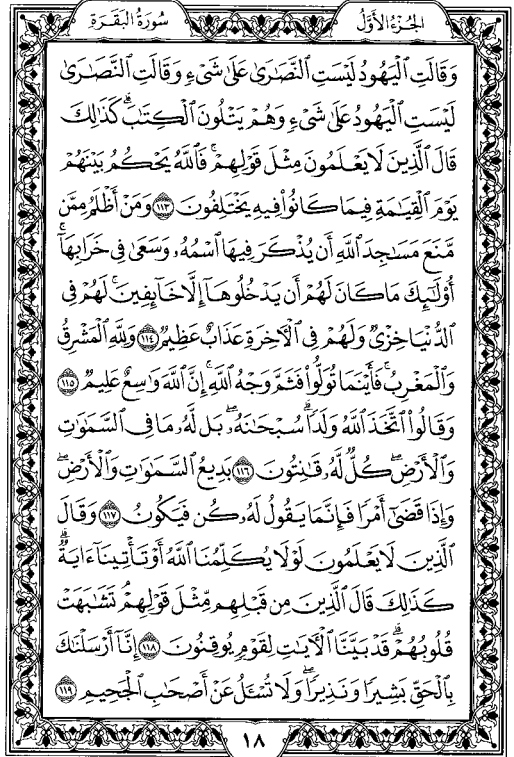 سُورَةُ البَقَرَةِ الجُزْءُ الأَوَّلُ
وَقَالَتِ ٱلْيَهُودُ لَيْسَتِ ٱلنَّصَٰرَىٰ عَلَىٰ شَىْءٍ وَقَالَتِ ٱلنَّصَٰرَىٰ
لَيْسَتِ ٱلْيَهُودُ عَلَىٰ شَىْءٍ وَهُمْ يَتْلُونَ ٱلْكِتَٰبَ ۗ كَذَٰلِكَ
قَالَ ٱلَّذِينَ لَا يَعْلَمُونَ مِثْلَ قَوْلِهِمْ ۚ فَٱللَّهُ يَحْكُمُ بَيْنَهُمْ
يَوْمَ ٱلْقِيَٰمَةِ فِيمَا كَانُوا۟ فِيهِ يَخْتَلِفُونَ ١١٣ وَمَنْ أَظْلَمُ مِمَّن
مَّنَعَ مَسَٰجِدَ ٱللَّهِ أَن يُذْكَرَ فِيهَا ٱسْمُهُۥ وَسَعَىٰ فِى خَرَابِهَآ ۚ
أُو۟لَٰٓئِكَ مَا كَانَ لَهُمْ أَن يَدْخُلُوهَآ إِلَّا خَآئِفِينَ ۚ لَهُمْ فِى
ٱلدُّنْيَا خِزْىٌ وَلَهُمْ فِى ٱلْءَاخِرَةِ عَذَابٌ عَظِيمٌ ١١٤ وَلِلَّهِ ٱلْمَشْرِقُ
وَٱلْمَغْرِبُ ۚ فَأَيْنَمَا تُوَلُّوا۟ فَثَمَّ وَجْهُ ٱللَّهِ ۚ إِنَّ ٱللَّهَ وَٰسِعٌ عَلِيمٌ ١١٥
وَقَالُوا۟ ٱتَّخَذَ ٱللَّهُ وَلَدًا ۗ سُبْحَٰنَهُۥ ۖ بَل لَّهُۥ مَا فِى ٱلسَّمَٰوَٰتِ
وَٱلْأَرْضِ ۖ كُلٌّ لَّهُۥ قَٰنِتُونَ ١١٦ بَدِيعُ ٱلسَّمَٰوَٰتِ وَٱلْأَرْضِ ۖ
وَإِذَا قَضَىٰٓ أَمْرًا فَإِنَّمَا يَقُولُ لَهُۥ كُن فَيَكُونُ ١١٧ وَقَالَ
ٱلَّذِينَ لَا يَعْلَمُونَ لَوْلَا يُكَلِّمُنَا ٱللَّهُ أَوْ تَأْتِينَآ ءَايَةٌ ۗ
كَذَٰلِكَ قَالَ ٱلَّذِينَ مِن قَبْلِهِم مِّثْلَ قَوْلِهِمْ ۘ تَشَٰبَهَتْ
قُلُوبُهُمْ ۗ قَدْ بَيَّنَّا ٱلْءَايَٰتِ لِقَوْمٍ يُوقِنُونَ ١١٨ إِنَّآ أَرْسَلْنَٰكَ
بِٱلْحَقِّ بَشِيرًا وَنَذِيرًا ۖ وَلَا تُسْـَٔلُ عَنْ أَصْحَٰبِ ٱلْجَحِيمِ ١١٩
١٨